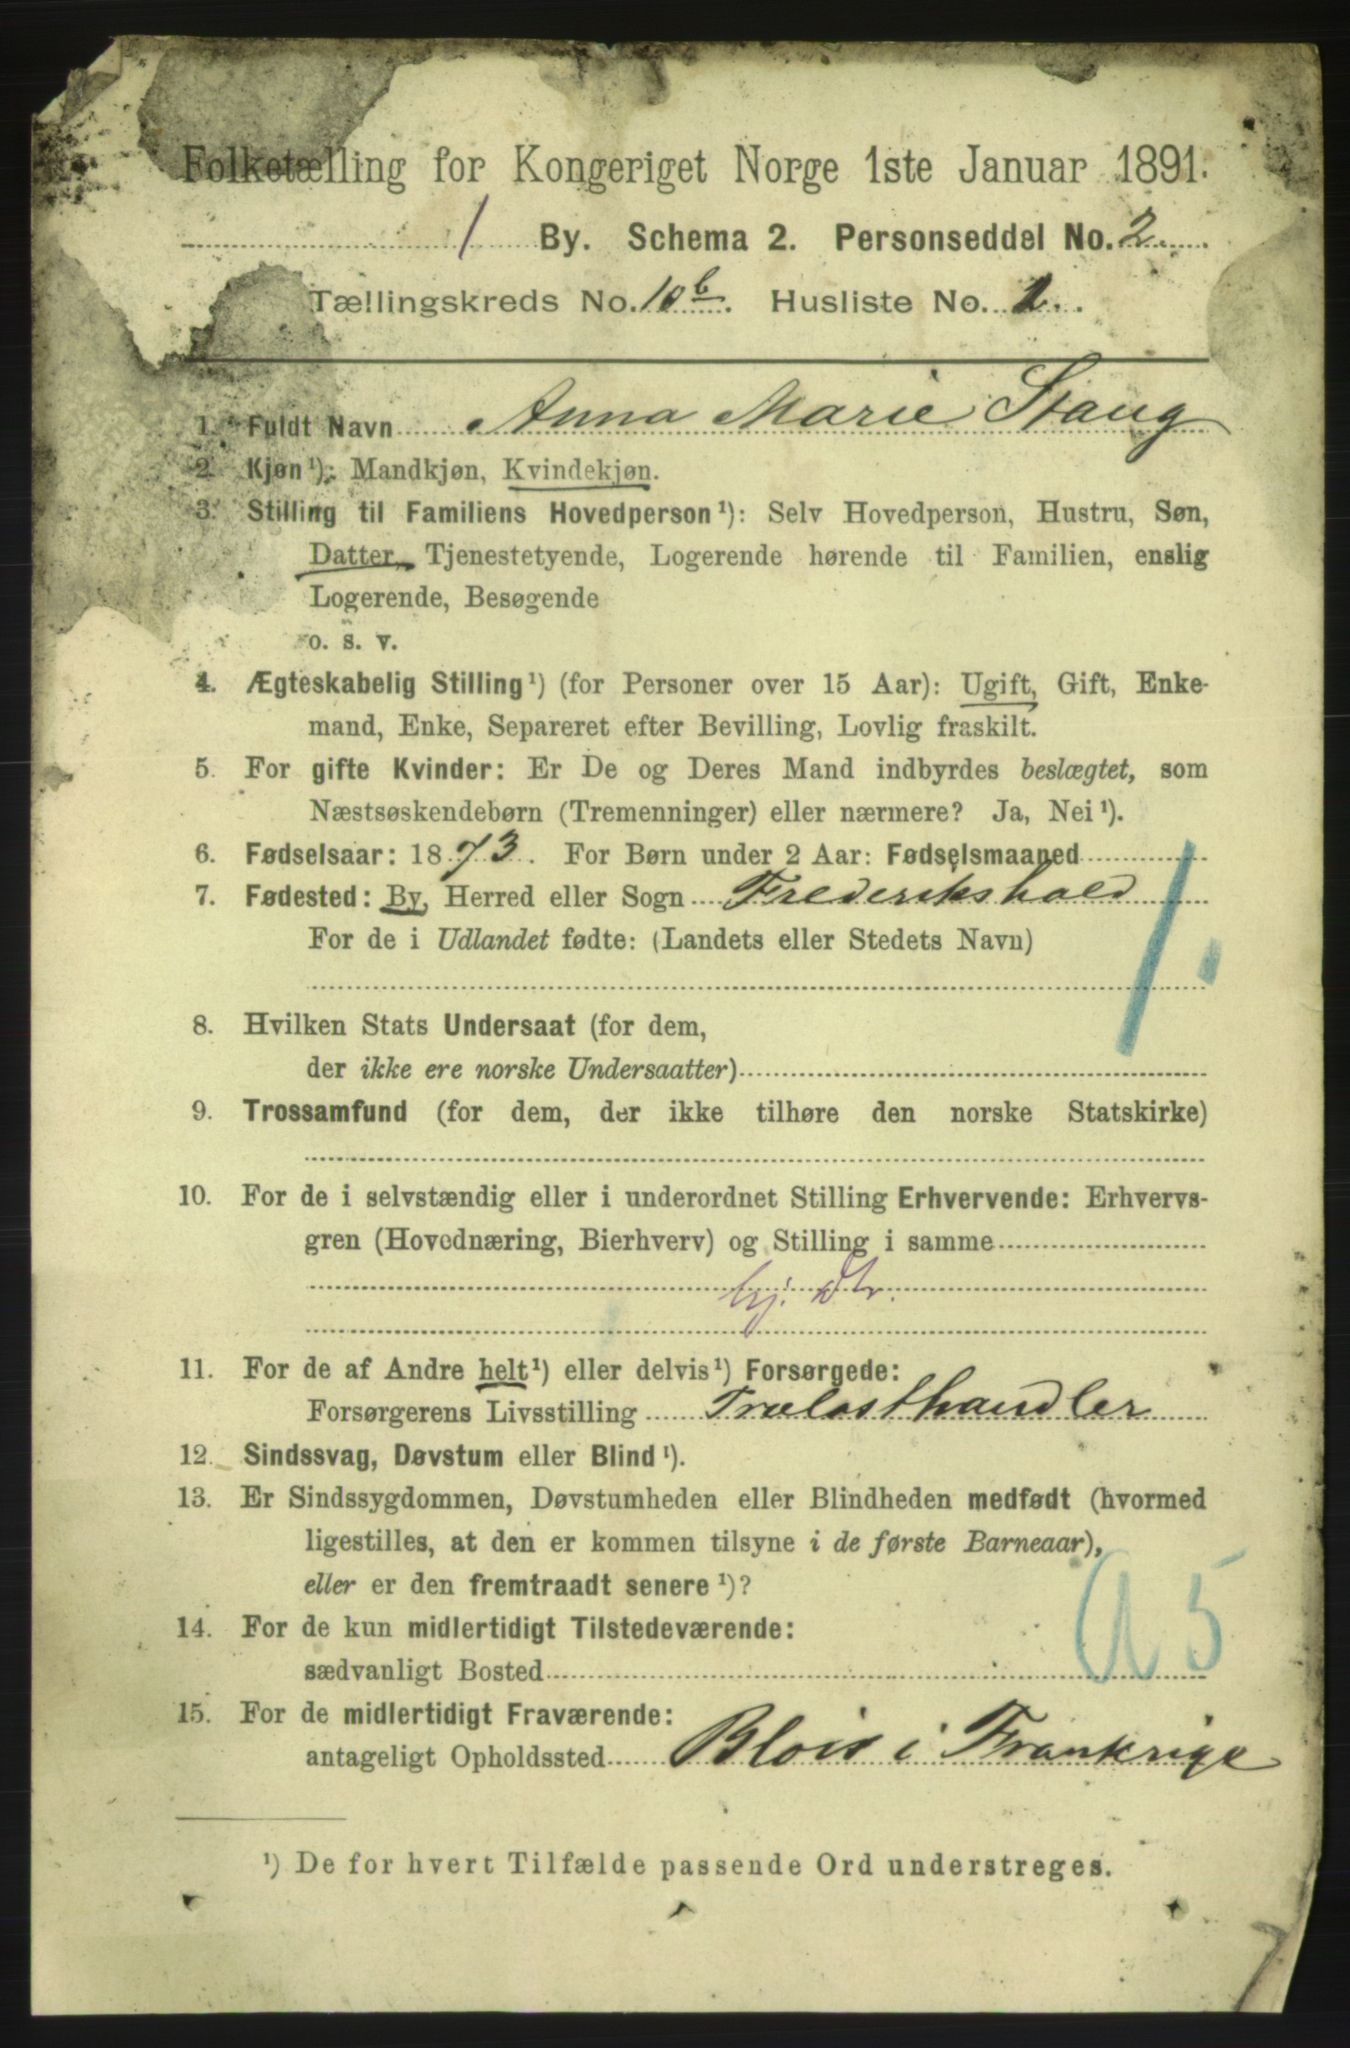 Folketælling for Kongeriget Norge 1ste Januar 1891.
1 By. Schema 2. Personseddel No. 2
Tællingskreds No. 10b. Husliste No. 1.
1. Fuldt Navn Anna Marie Stang
2. Kjøn¹): Mandkjøn, Kvindekjøn.
3. Stilling til Familiens Hovedperson¹): Selv Hovedperson, Hustru, Søn,
Datter, Tjenestetyende, Logerende hørende til Familien, enslig
Logerende, Besøgende
o. s. v.
4. Ægteskabelig Stilling¹) (for Personer over 15 Aar): Ugift, Gift, Enke-
mand, Enke, Separeret efter Bevilling, Lovlig fraskilt.
5. For gifte Kvinder: Er De og Deres Mand indbyrdes beslægtet, som
Næstsøskendebørn (Tremenninger) eller nærmere? Ja, Nei¹).
6. Fødselsaar: 1873. For Børn under 2 Aar: Fødselsmaaned
7. Fødested: By, Herred eller Sogn Frederikshald
For de i Udlandet fødte: (Landets eller Stedets Navn)
1.
8. Hvilken Stats Undersaat (for dem,
der ikke ere norske Undersaatter)
9. Trossamfund (for dem, der ikke tilhøre den norske Statskirke)
10. For de i selvstændig eller i underordnet Stilling Erhvervende: Erhvervs-
gren (Hovednæring, Bierhverv) og Stilling i samme
hj. dtr.
11. For de af Andre helt¹) eller delvis¹) Forsørgede:
Forsørgerens Livsstilling Trælasthandler
12. Sindssvag, Døvstum eller Blind¹).
13. Er Sindssygdommen, Døvstumheden eller Blindheden medfødt (hvormed
ligestilles, at den er kommen tilsyne i de første Barneaar),
eller er den fremtraadt senere¹)?
14. For de kun midlertidigt Tilstedeværende:
sædvanligt Bosted
a 5
15. For de midlertidigt Fraværende:
antageligt Opholdssted Blois i Frankrige
¹) De for hvert Tilfælde passende Ord understreges.